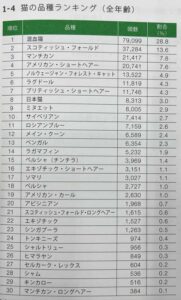 1-4 猫の品種ランキング（全年齢）
順位 品種 頭数 割合(%)
1 混血猫 79,099 28.8
2 スコティッシュ・フォールド 37,284 13.6
3 マンチカン 21,417 7.8
4 アメリカン・ショートヘアー 20,741 7.6
5 ノルウェージャン・フォレスト・キャット 13,522 4.9
6 ラグドール 11,818 4.3
7 ブリティッシュ・ショートヘアー 11,746 4.3
8 日本猫 8,313 3.0
9 ミヌエット 6,005 2.9
10 サイベリアン 7,414 2.7
11 ロシアンブルー 7,159 2.6
12 メイン・クーン 6,589 2.4
13 ベンガル 6,354 2.3
14 ラガマフィン 5,232 1.9
15 ペルシャ（チンチラ） 3,969 1.4
16 エキゾチック・ショートヘアー 3,151 1.1
17 ソマリ 3,027 1.1
18 ペルシャ 2,727 1.0
19 アメリカン・カール 2,630 1.0
20 アビシニアン 1,968 0.7
21 スコティッシュ・フォールド・ロングヘアー 1,615 0.6
22 エキゾチック 1,527 0.6
23 シンガプーラ 1,263 0.5
24 トンキニーズ 974 0.4
25 シャルトリュー 956 0.3
26 ヒマラヤン 849 0.3
27 セルカーク・レックス 604 0.2
28 シャム 536 0.2
29 キンカロー 516 0.2
30 マンチカン・ロングヘアー 384 0.1